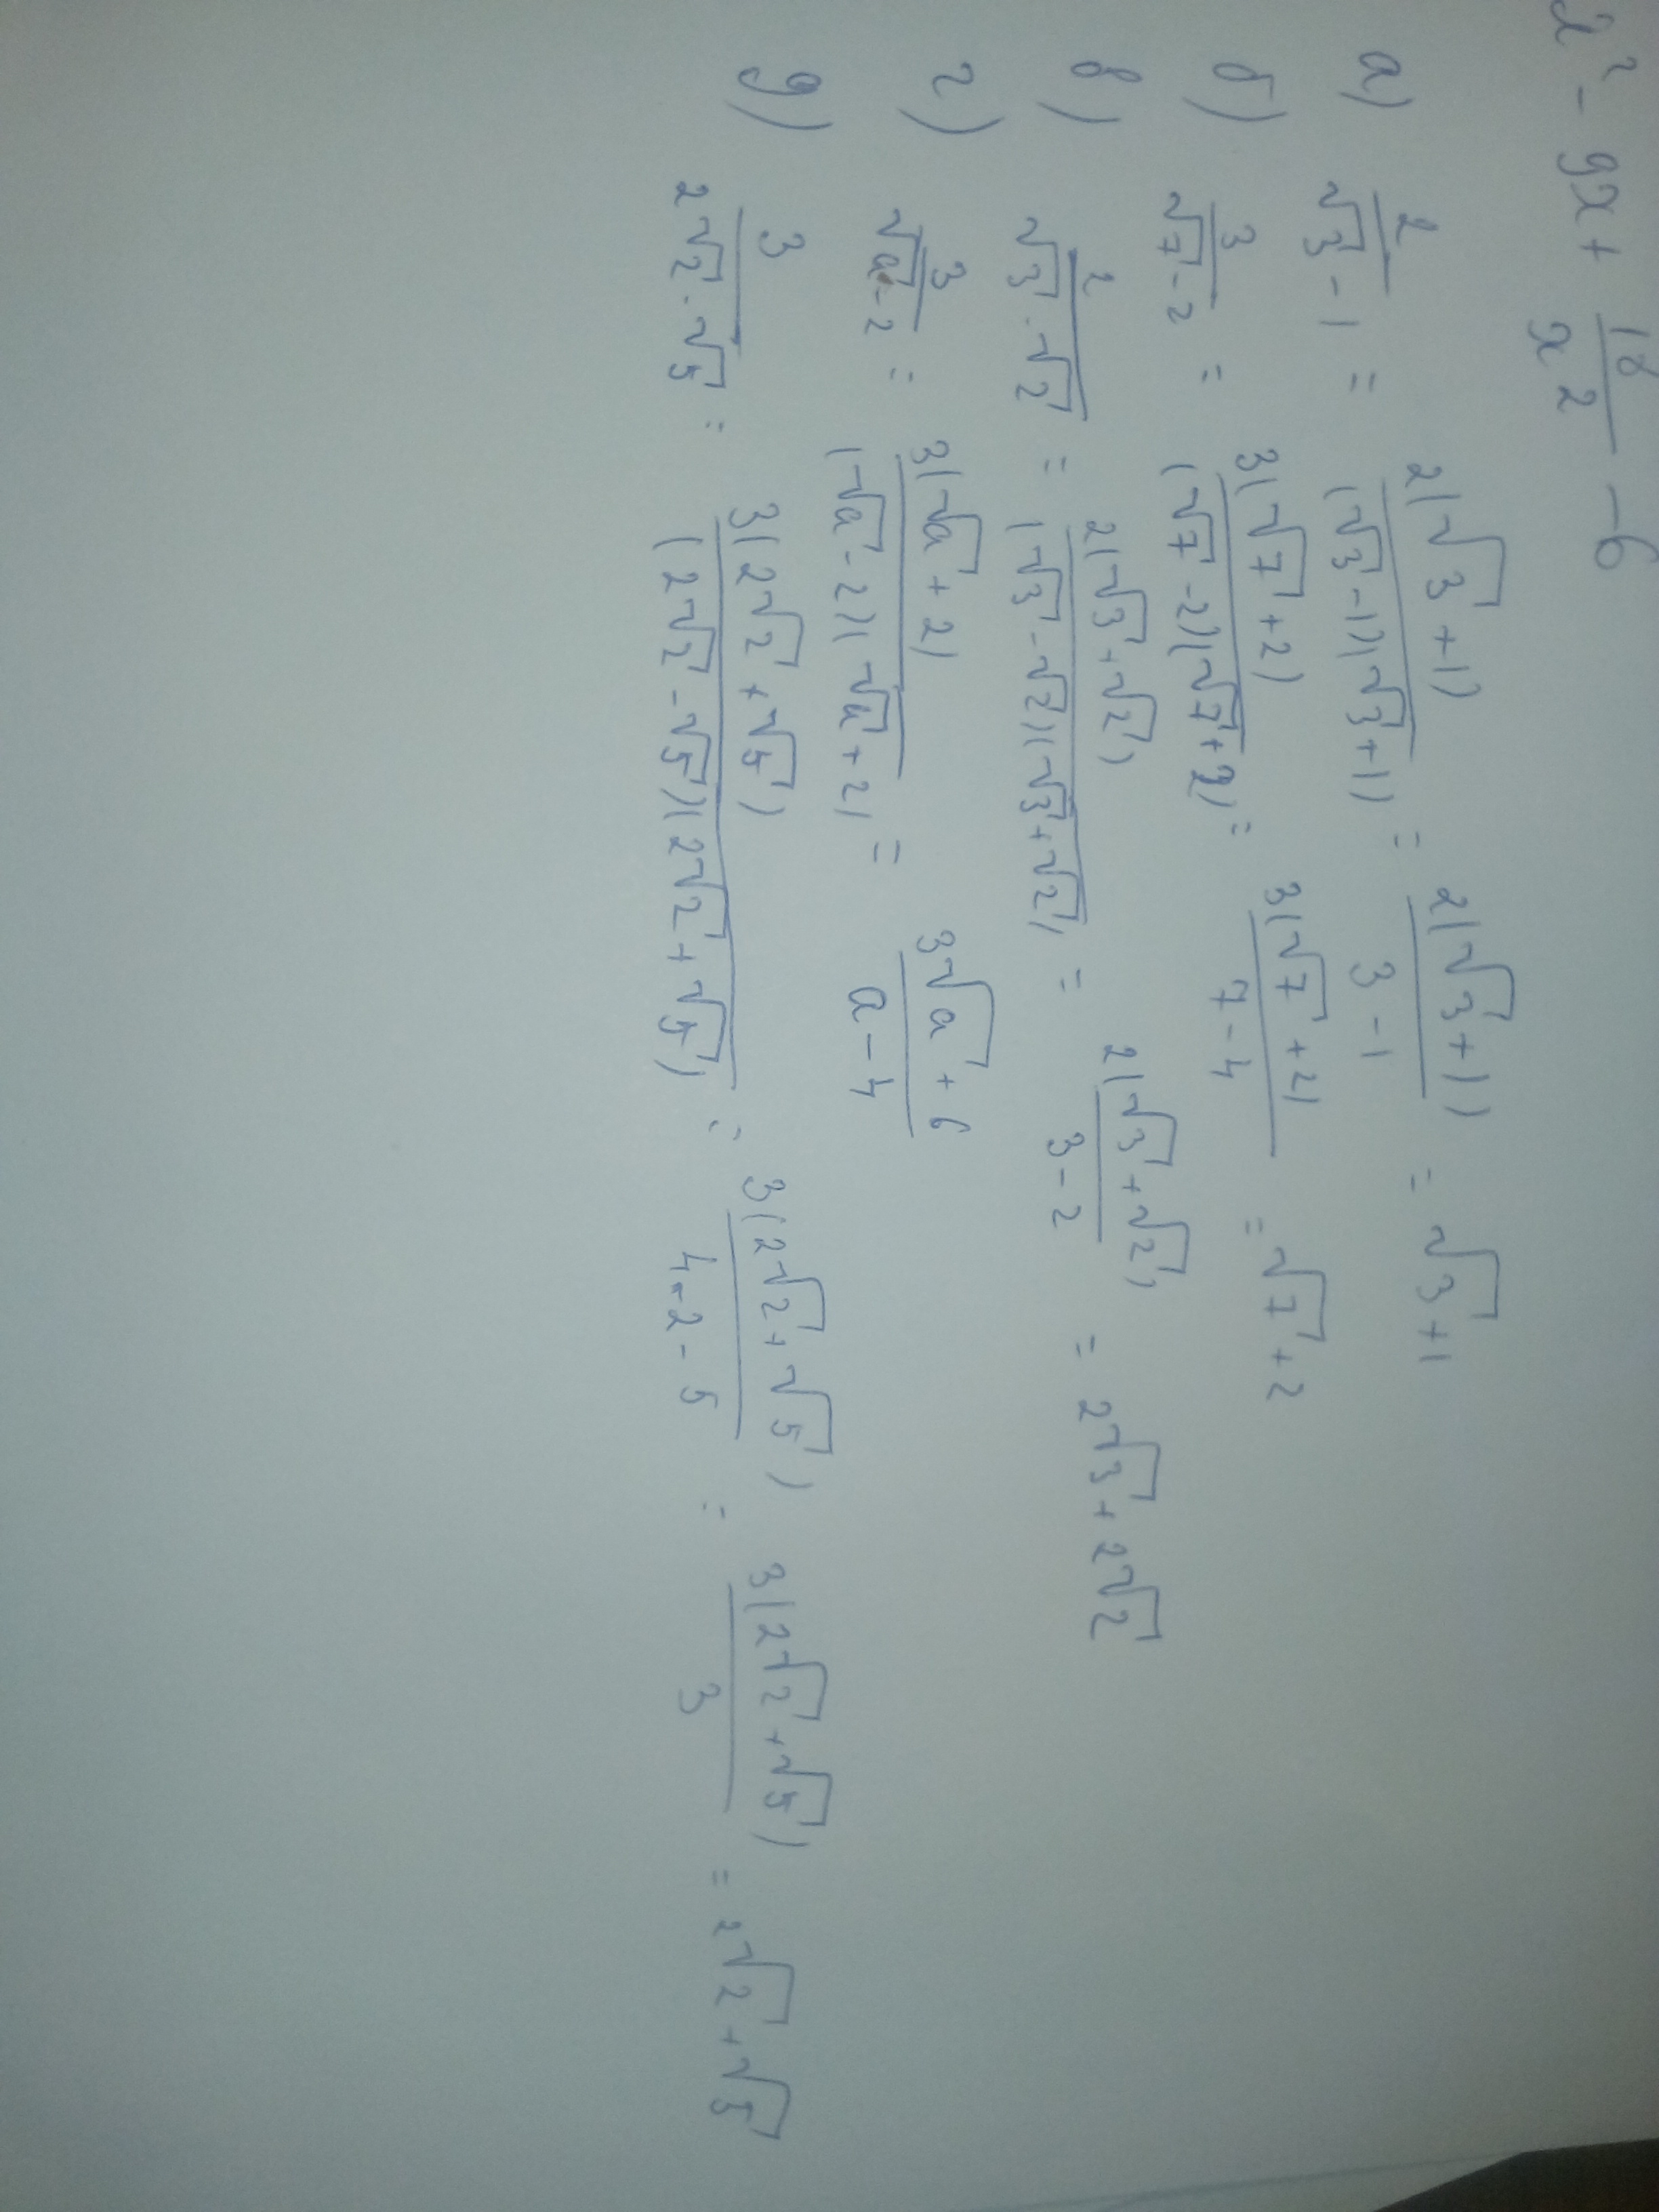 x² - 9x + 18/x2 - 6
а) 2/(√3 - 1) = 2(√3 + 1)/((√3 - 1)(√3 + 1)) = 2(√3 + 1)/(3 - 1) = √3 + 1
б) 3/(√7 - 2) = 3(√7 + 2)/((√7 - 2)(√7 + 2)) = 3(√7 + 2)/(7 - 4) = √7 + 2
в) 2/(√3 · √2) = 2(√3 + √2)/((√3 - √2)(√3 + √2)) = 2(√3 + √2)/(3 - 2) = 2√3 + 2√2
г) 3/(√a - 2) = 3(√a + 2)/((√a - 2)(√a + 2)) = (3√a + 6)/(a - 4)
д) 3/(2√2 · √5) = 3(2√2 + √5)/((2√2 - √5)(2√2 + √5)) = 3(2√2 + √5)/(4·2 - 5) = 3(2√2 + √5)/3 = 2√2 + √5